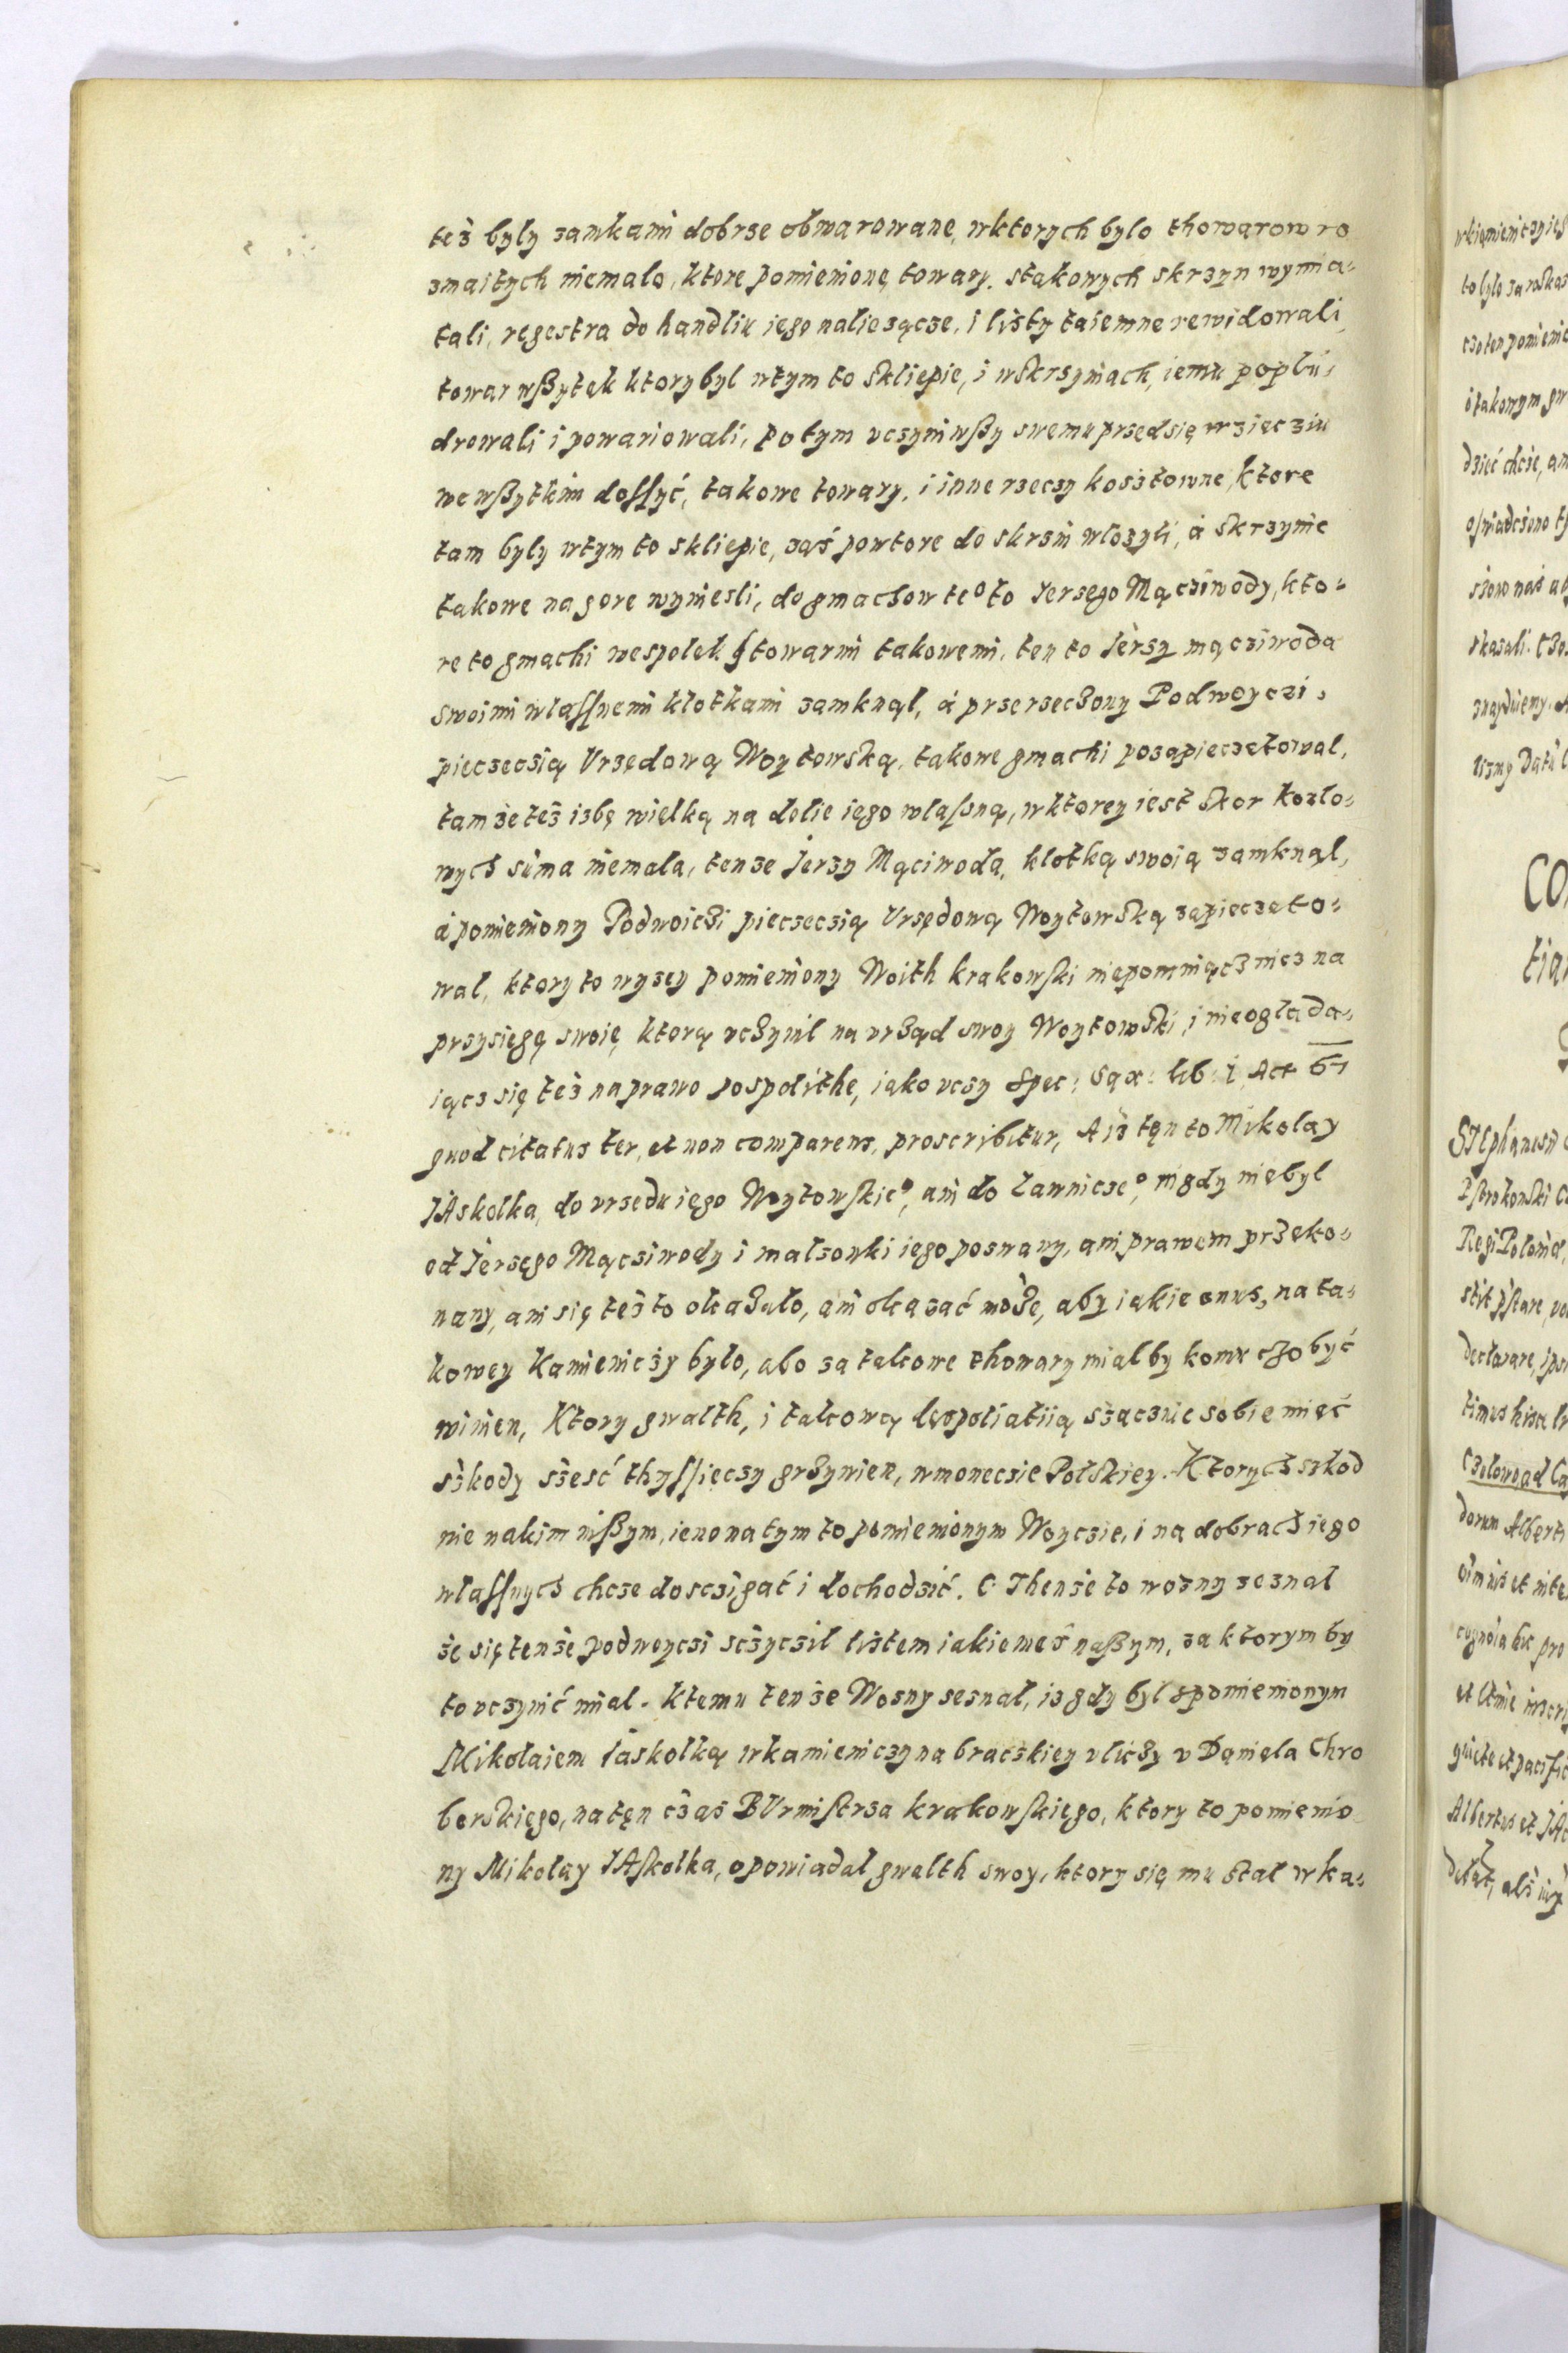 też były zamkami dobrze obwarowane, wktorych bylo thowarow ro
zmaitych niemalo, ktore pomienione towary, stakowych skrzyn wymia-
tali, regestra do handliu iego należącze, i listy taiemne rewidowali
towar wßytek ktory byl wtym to skliepie, i wskrzyniach, iemu poplu-
drowali i powariowali, potym vczyniwßy swemu przedsięwzięcziu
we wßytkim dossyć, takowe towary, i inne rzeczy kosztowne, ktore
tam byly wtym to skliepie, zaś powtore do skrzin włożyli, á skrzynie
takowe na gore wyniesli, do gmachow te⁰ to Jerzego Mącziwody, kto-
re to gmachi wespolek stowarmi takowemi, ten to Jerzy mącziwoda
swoimi wlassnemi kłotkami zamknąl, á przerzeczony Podwoyczi,
pieczeczią Vrzędową Woytowską, takowe gmachi pozapieczętowal,
tamże też izbę wielką na dolie iego wlasną, wktorey iest skor kozło-
wych suma niemala, tenze Jerzy Mąciwoda, klotką swoią zamknąl,
á pomieniony Podwoiczi pieczeczią Vrzędową Woytowską zapieczęto-
wal, ktory to wyzey pomieniony Woith krakowski niepomniącz nicz na
przysięgę swoię, ktorą vczynil na vrząd swoy Woytowski, i nieogląda-
iącz się też na prawo pospolithe, iako vczy Spec: Sax: lib: 1 Art 67
quod citatus ter, et non comparens, proscribitur, A iż ten to Mikolay
JAskolka, do vrzedu iego Woytowskie⁰, ani do Lawnicze⁰, nigdy niebyl
od Jerzego Mącziwody i malżonki iego pozwany, ani prawem przeko-
nany, ani się też to okazało, ani okazać może, aby iakie onus, na ta-
kowey Kamieniczy było, abo za takowe thowary mialby komu czo być
winien, Ktory gwalth, i takową depoliatiią szącznie sobie mieć
szkody szesć thyssięczy grzywien, wmonecie Polskiey. Ktorych szkod
nie nakim inßym, ieno na tym to pomienionym Woyczie, i na dobrach iego
wlassnych chcze dosczigać i dochodzić. C Thenże to wozny zeznal
że się tenże podwoyczi sczyczil listem iakiemeś naßym, za ktorym by
to vczynić mial. Ktemu tenże Wozny zeznal, iz gdy byl spomienionym
Mikołaiem Jaskolką wkamieniczy na brackiey vliczy v Daniela Chro
berskiego, naten czas BUrmistrza krakowskiego, ktory to pomienio
ny Mikolay JAskolka, opowiadal gwalth swoy, ktory się mu stal wka-